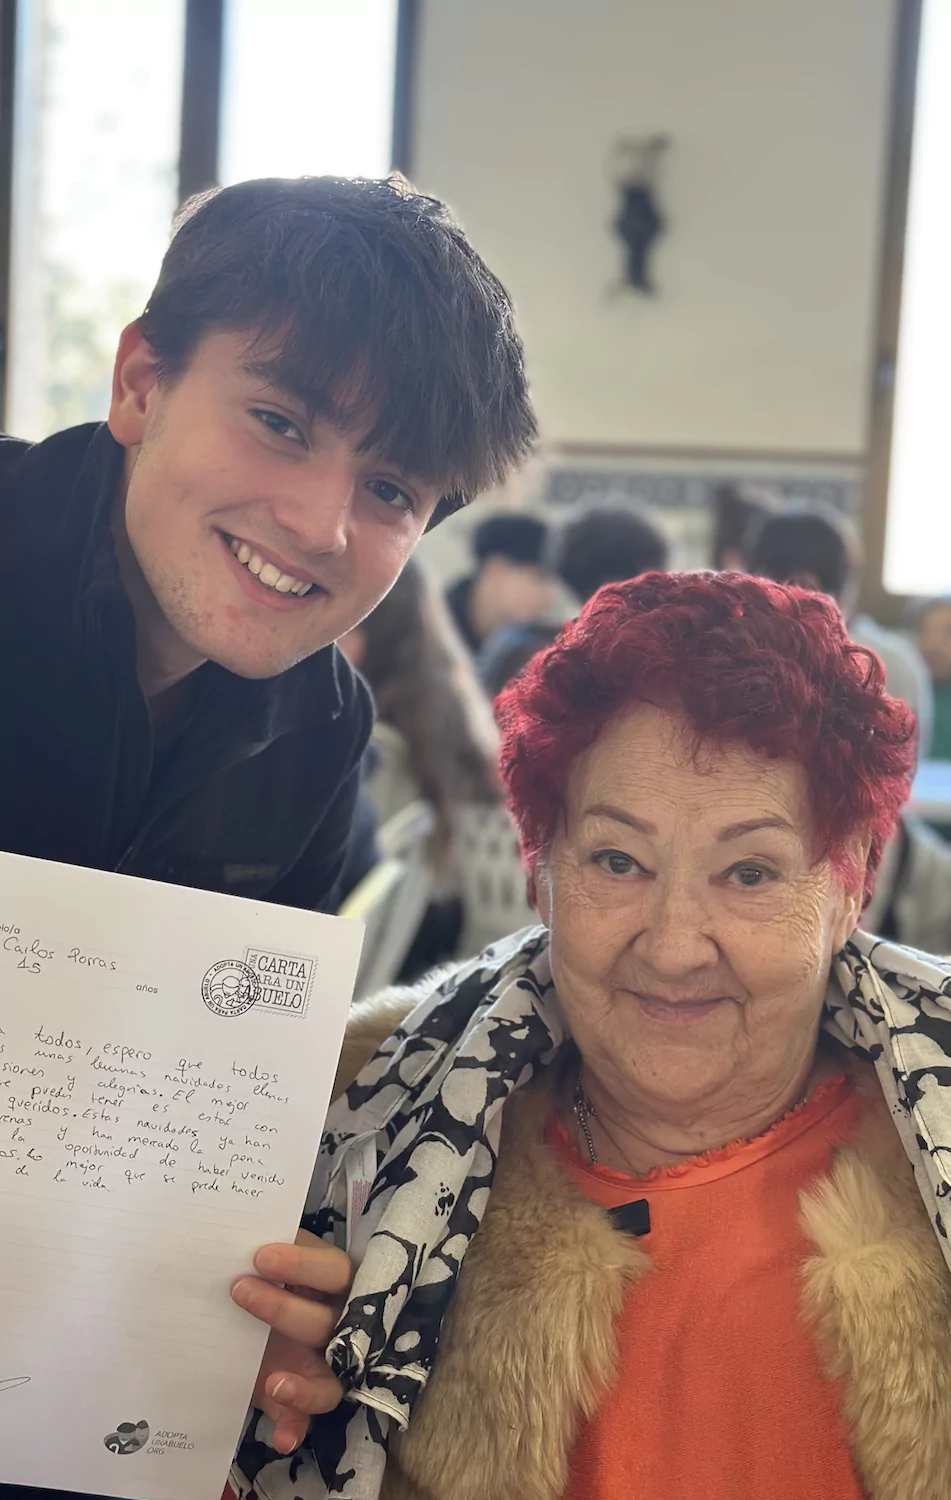 Carlos Porras
15
años
UNA CARTA
PARA UN
ABUELO
ADOPTA UN ABUELO
UNA CARTA PARA UN ABUELO
todos, espero que todos
unas buenas navidades llenas
siones y alegrías. El mejor
pueden tener es estar con
queridos. Estas navidades ya han
y han mercado la pena
la oportunidad de haber venido
mejor que se puede hacer
de la vida.
ADOPTA
UNABUELO
.ORG